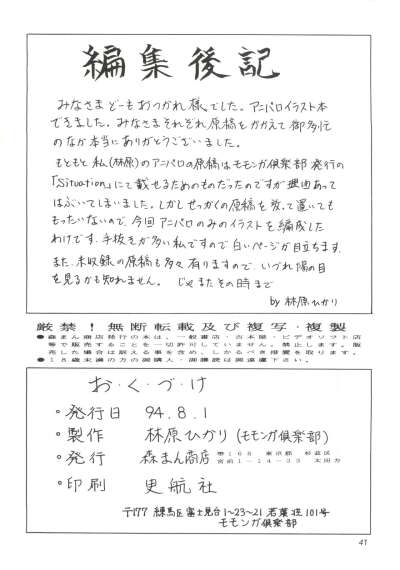 編集後記
みなさまどーもおつかれ様でした。アニパロイラスト本
できました。みなさまそれぞれ原稿をかかえて御多忙
のなか本当にありがとうございました。
もともと私(林原)のアニパロの原稿はモモンガ倶楽部発行の
「Situation」にて載せるためのものだったのですが理由あって
はぶいてしまいました。しかしせっかくの原稿を放って置いても
もったいないので、今回アニパロのみのイラストを編成した
わけです。手抜きが多い私ですので白いページが目立ちます。
また、未収録の原稿も多々有りますので、いづれ陽の目
を見るかも知れません。じゃまたその時まで
by 林原ひかり
厳禁!無断転載及び複写・複製
●森まん商店発行の本は、一般書店・古本屋・ビデオソフト店
等で販売することを一切許可していません。禁止します。販
売した場合は訴える事を含め、しかるべき措置を取ります。
●18歳未満の方の御購入・御購読は御遠慮下さい。
お・く・づ・け
・発行日 94.8.1
・製作 林原ひかり(モモンガ倶楽部)
・発行 森まん商店 〒168 東京都 杉並区
宮前1-14-33 太田方
・印刷 吏航社
〒177 練馬区富士見台1~23~21 若葉荘101号
モモンガ倶楽部
41